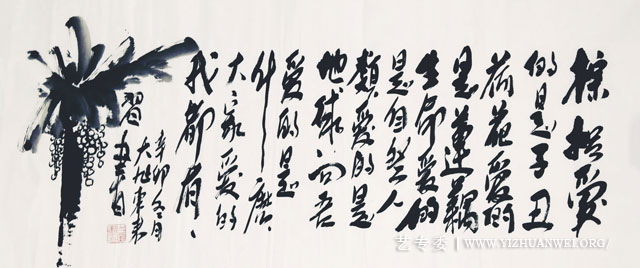 棕榈爱
的是子丑
荷花爱的
是莲藕
生命爱的
是自然人
类爱的是
地球问吾
爱的是
什麽
大家爱的
我都有
辛卯冬月
艺专委 | WWW.YIZHUANWEI.ORG/